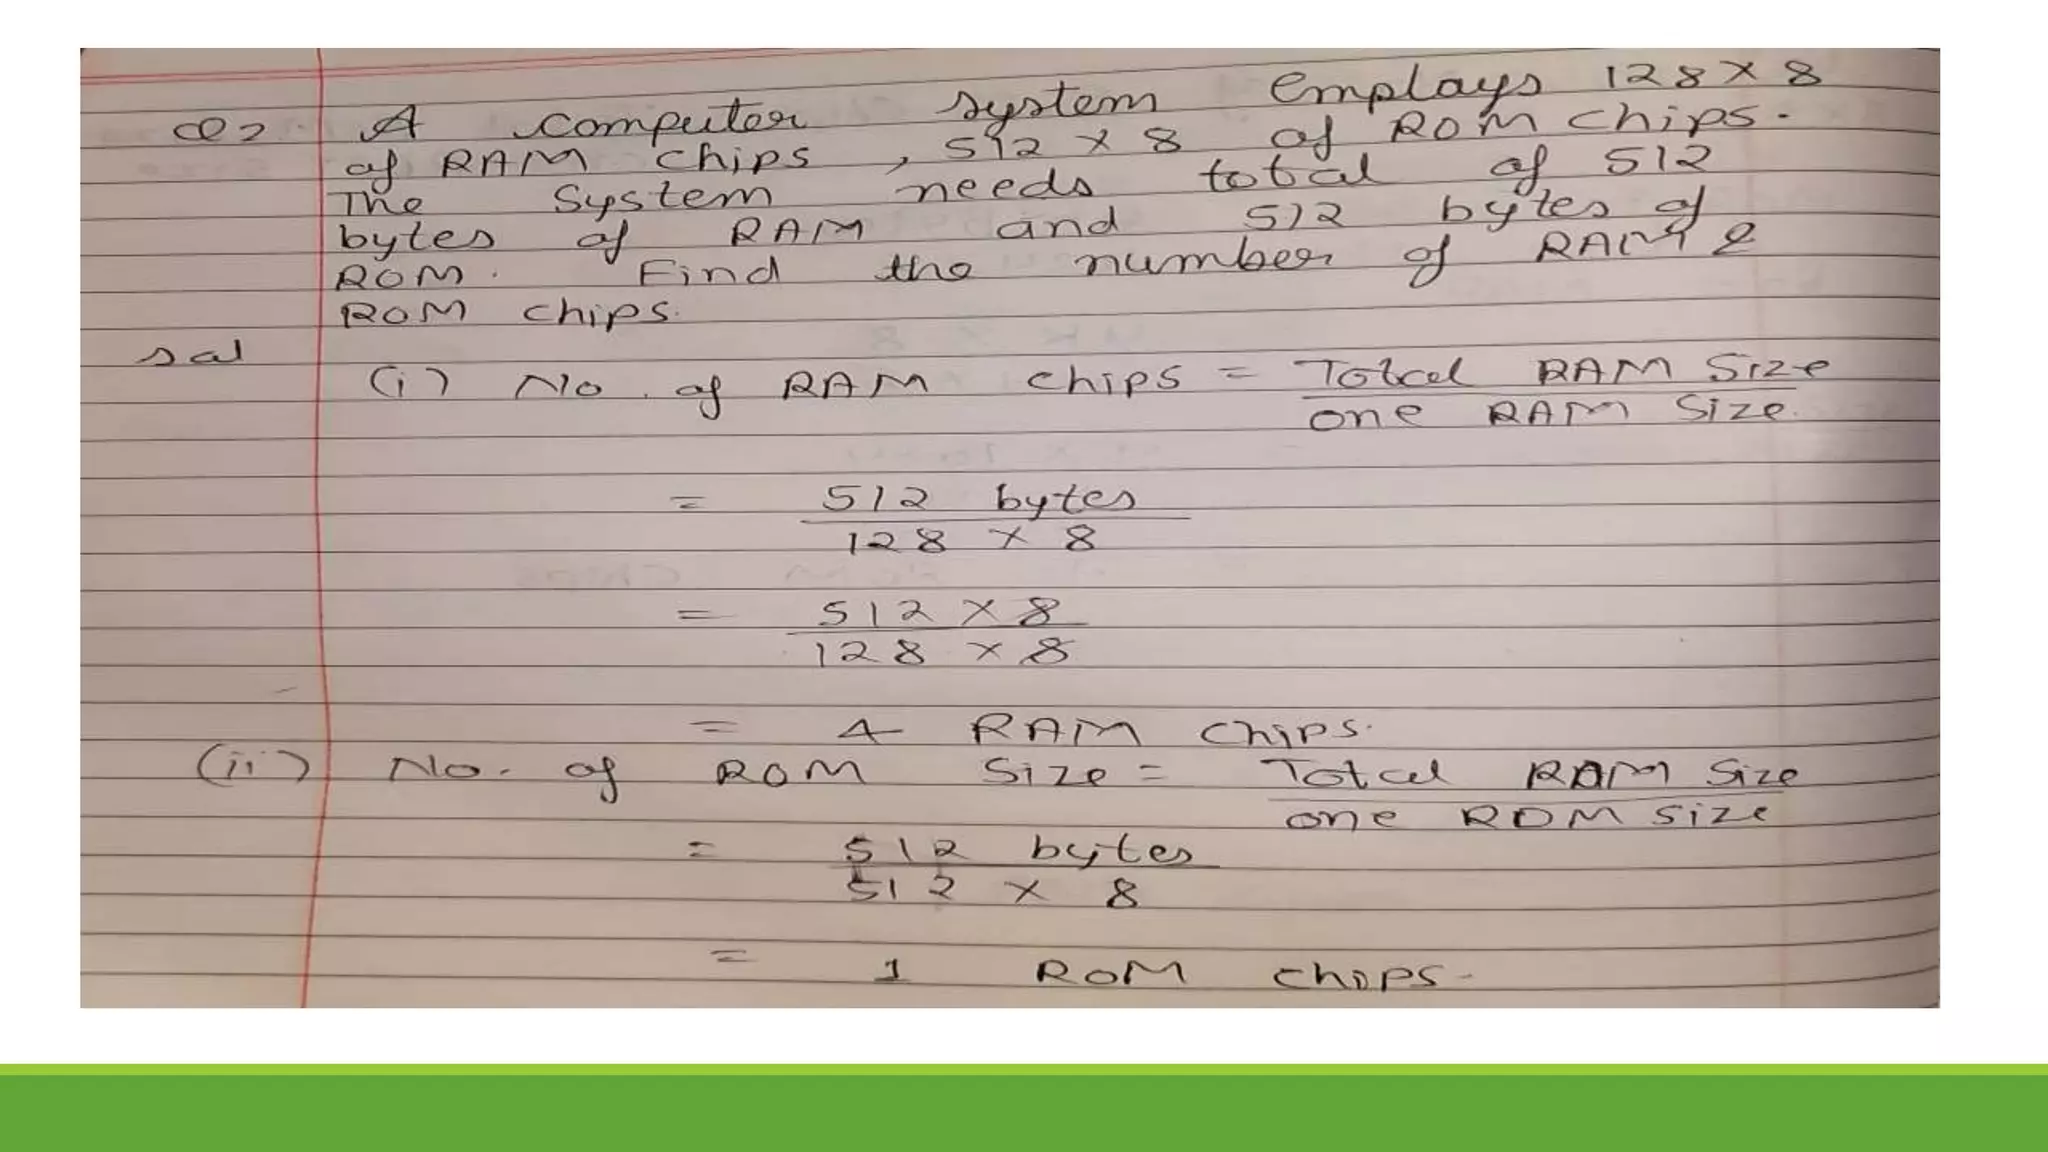 Q2 A computer system employs 128 × 8
of RAM chips, 512 × 8 of ROM chips.
The system needs total of 512
bytes of RAM and 512 bytes of
ROM. Find the number of RAM &
ROM chips.
sol
(i) No. of RAM chips = Total RAM Size
one RAM Size.
= 512 bytes
128 × 8
= 512 × 8
128 × 8
= 4 RAM chips.
(ii) No. of ROM Size = Total ROM Size
one ROM size
= 512 bytes
512 × 8
= 1 ROM chips.